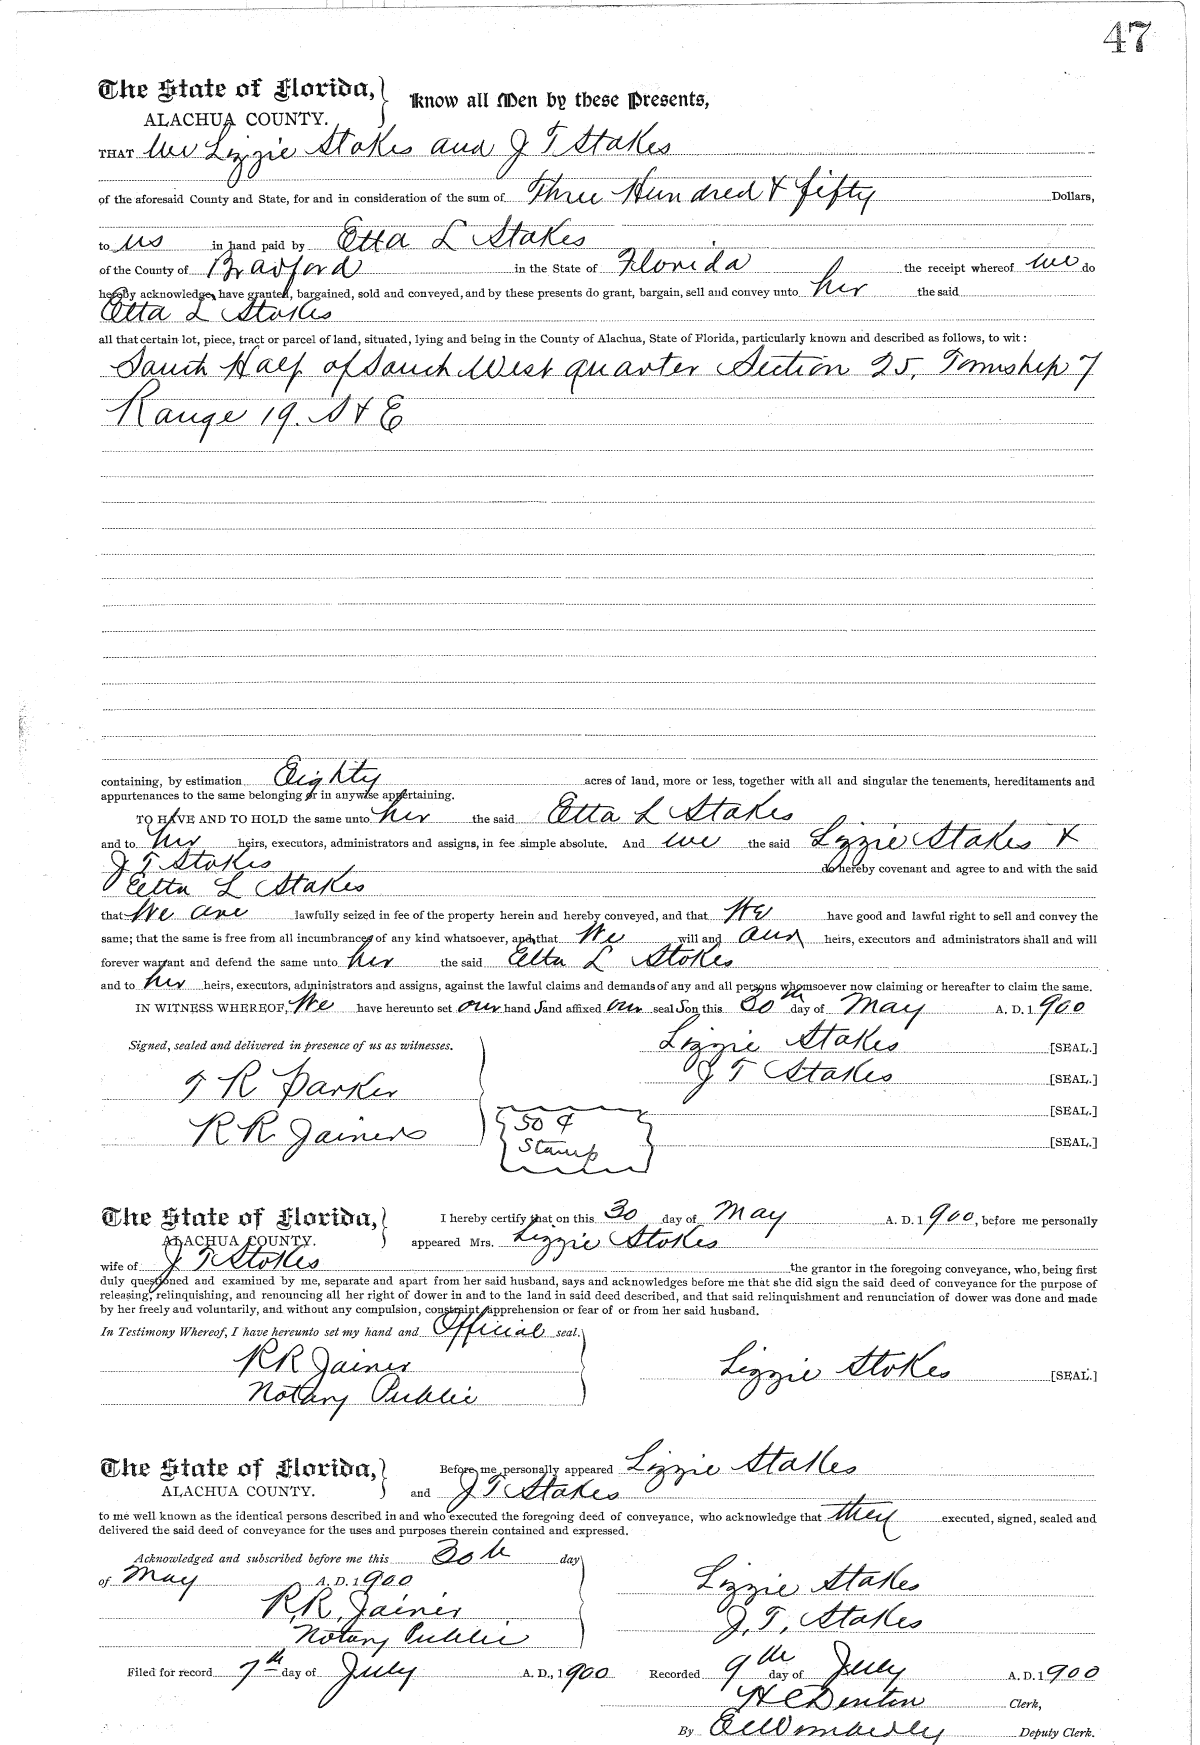 47
The State of Florida, Know all Men by these Presents,
ALACHUA COUNTY.
THAT We Lizzie Stokes and J T Stokes
of the aforesaid County and State, for and in consideration of the sum of Three Hundred & fifty Dollars,
to us in hand paid by Etta L Stokes
of the County of Bradford in the State of Florida the receipt whereof we do
hereby acknowledge, have granted, bargained, sold and conveyed, and by these presents do grant, bargain, sell and convey unto her the said
Etta L Stokes
all that certain lot, piece, tract or parcel of land, situated, lying and being in the County of Alachua, State of Florida, particularly known and described as follows, to wit:
South Half of South West quarter Section 25, Township 7
Range 19. S & E
containing, by estimation Eighty acres of land, more or less, together with all and singular the tenements, hereditaments and
appurtenances to the same belonging or in anywise appertaining.
TO HAVE AND TO HOLD the same unto her the said Etta L Stokes
and to her heirs, executors, administrators and assigns, in fee simple absolute. And we the said Lizzie Stokes &
J T Stokes do hereby covenant and agree to and with the said
Etta L Stokes
that We are lawfully seized in fee of the property herein and hereby conveyed, and that We have good and lawful right to sell and convey the
same; that the same is free from all incumbrances of any kind whatsoever, and that We will and our heirs, executors and administrators shall and will
forever warrant and defend the same unto her the said Etta L Stokes
and to her heirs, executors, administrators and assigns, against the lawful claims and demands of any and all persons whomsoever now claiming or hereafter to claim the same.
IN WITNESS WHEREOF, We have hereunto set our hand s and affixed our seal s on this 30th day of May A. D. 1900
Signed, sealed and delivered in presence of us as witnesses. Lizzie Stokes [SEAL.]
T R Parker J T Stokes [SEAL.]
[SEAL.]
R R Jainers 50 ¢ Stamp [SEAL.]
The State of Florida, I hereby certify that on this 30 day of May A. D. 1900, before me personally
ALACHUA COUNTY. appeared Mrs. Lizzie Stokes
wife of J T Stokes the grantor in the foregoing conveyance, who, being first
duly questioned and examined by me, separate and apart from her said husband, says and acknowledges before me that she did sign the said deed of conveyance for the purpose of
releasing, relinquishing, and renouncing all her right of dower in and to the land in said deed described, and that said relinquishment and renunciation of dower was done and made
by her freely and voluntarily, and without any compulsion, constraint, apprehension or fear of or from her said husband.
In Testimony Whereof, I have hereunto set my hand and Official seal.
R R Jainer Lizzie Stokes [SEAL.]
Notary Public
The State of Florida, Before me personally appeared Lizzie Stokes
ALACHUA COUNTY. and J T Stokes
to me well known as the identical persons described in and who executed the foregoing deed of conveyance, who acknowledge that they executed, signed, sealed and
delivered the said deed of conveyance for the uses and purposes therein contained and expressed.
Acknowledged and subscribed before me this 30th day
of May A. D. 1900 Lizzie Stokes
R. R. Jainer J. T. Stokes
Notary Public
Filed for record 7th day of July A. D., 1900 Recorded 9th day of July A. D. 1900
H C Denton Clerk,
By E C Womberly Deputy Clerk.